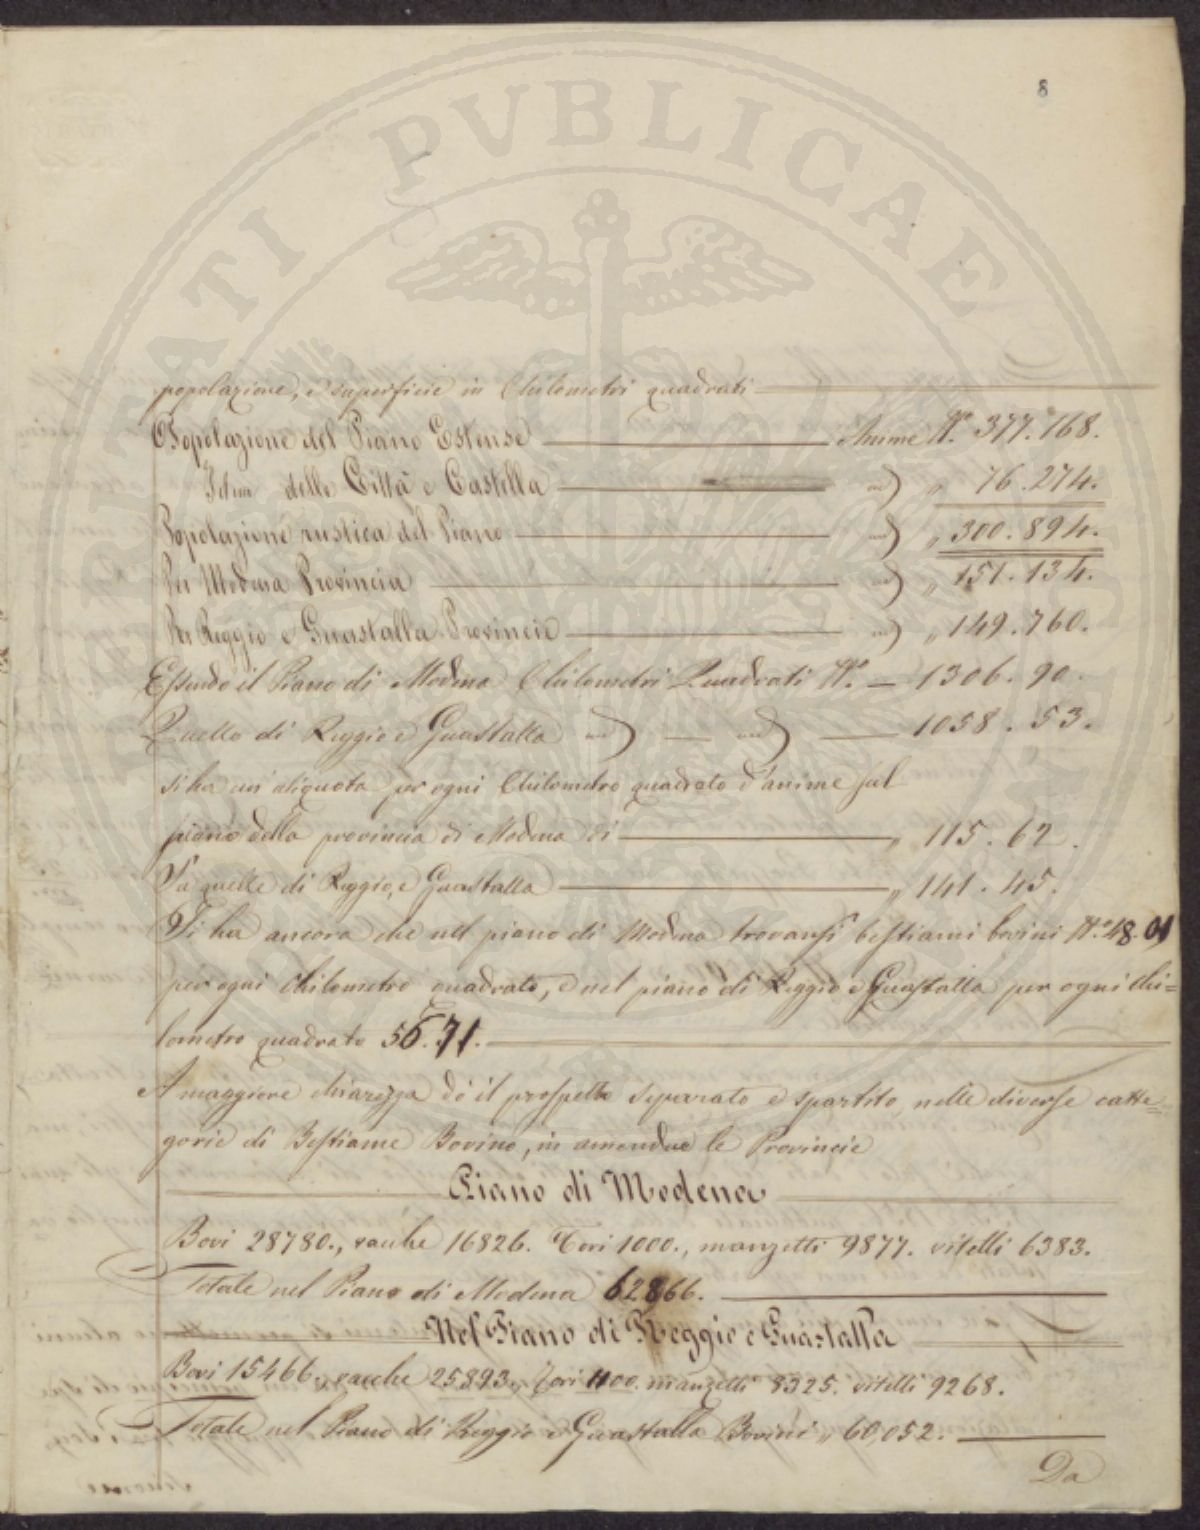 8
PROSPERITATI PUBLICAE
popolazione, e superficie in Chilometri quadrati
Popolazione del Piano Estense Anime N.° 377.168.
Idem delle Città e Castella id „ 76.274.
Popolazione rustica del Piano id „ 300.894.
Per Modena Provincia id „ 151.134.
Per Reggio e Guastalla Provincie id „ 149.760.
Essendo il Piano di Modena Chilometri Quadrati N.° 1306.90.
Quello di Reggio e Guastalla id id 1058.53.
si ha un'aliquota per ogni Chilometro quadrato d'anime sul
piano della provincia di Modena di „ 115.62.
Su quelle di Reggio, e Guastalla „ 141.45.
Si ha ancora che nel piano di Modena trovansi bestiami bovini N.° 48.01
per ogni Chilometro quadrato, e nel piano di Reggio e Guastalla per ogni Chi=
lometro quadrato 56.71.
A maggiore chiarezza do il prospetto separato e spartito, nelle diverse catte=
gorie di Bestiame Bovino, in amendue le Provincie
Piano di Modena
Bovi 28780., vacche 16826. Tori 1000., manzetti 9877. vitelli 6383.
Totale nel Piano di Modena 62866.
Nel Piano di Reggio e Guastalla
Bovi 15466., vacche 25893., Tori 1100. manzetti 8325. vitelli 9268.
Totale nel Piano di Reggio e Guastalla Bovini „ 60,052.
Da